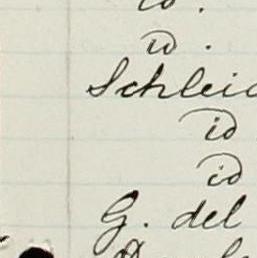 id.
id.
Schleic
id
id
G. del